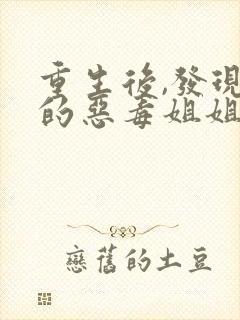 重生後,發現
的惡毒姐姐
戀舊的土豆